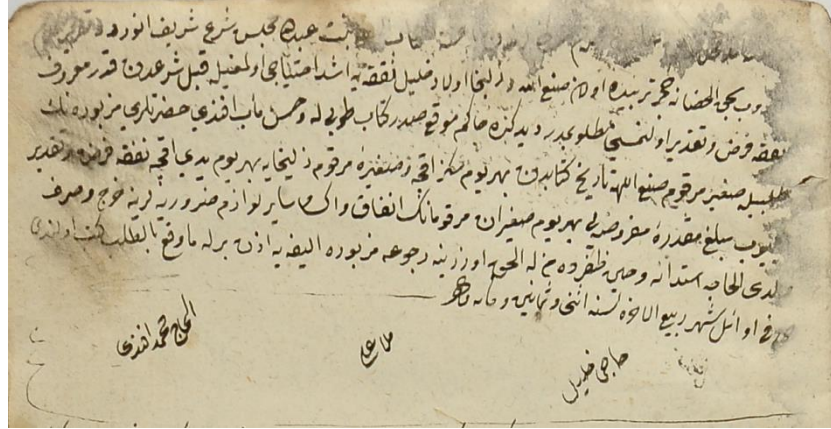 بنت عبد الله مجلس شرع شريف انورده
وب بحق الحضانه حجر تربيه ده اولان صنع الله و زليخا اولاد خليل نفقه يه اشد احتياج اولمغيله قبل شرعدن قدر معروف
نفقه فرض و تقدير اولنمسى مطلوبمدر ديدكده حاكم موقع صدر كتاب طوبى له وحسن مآب افندى حضرتلرى مزبوره نك
طلبيله صغير مرقوم صنع الله تاريخ كتابدن بهر يوم سكز اقچه و صغيره مرقومه زليخايه بهر يوم يدى اقچه نفقه فرض و تقدير
ايدوب مبلغ مقدره مفروضه يى بهر يوم صغيران مرقومانك انفاق و اكسا و ساير لوازم ضروريه لرينه خرج و صرف
لدى الحاجه استدانه و حين ظفرده من له الحق اوزرينه رجوعه مزبوره اليفه يه اذن برله ما وقع بالطلب كتب اولندى
فى اوائل شهر ربيع الاخره لسنه اثنى و ثمانين و مائه و الف
الحاج محمد افندى
ملا على
حاجى خليل